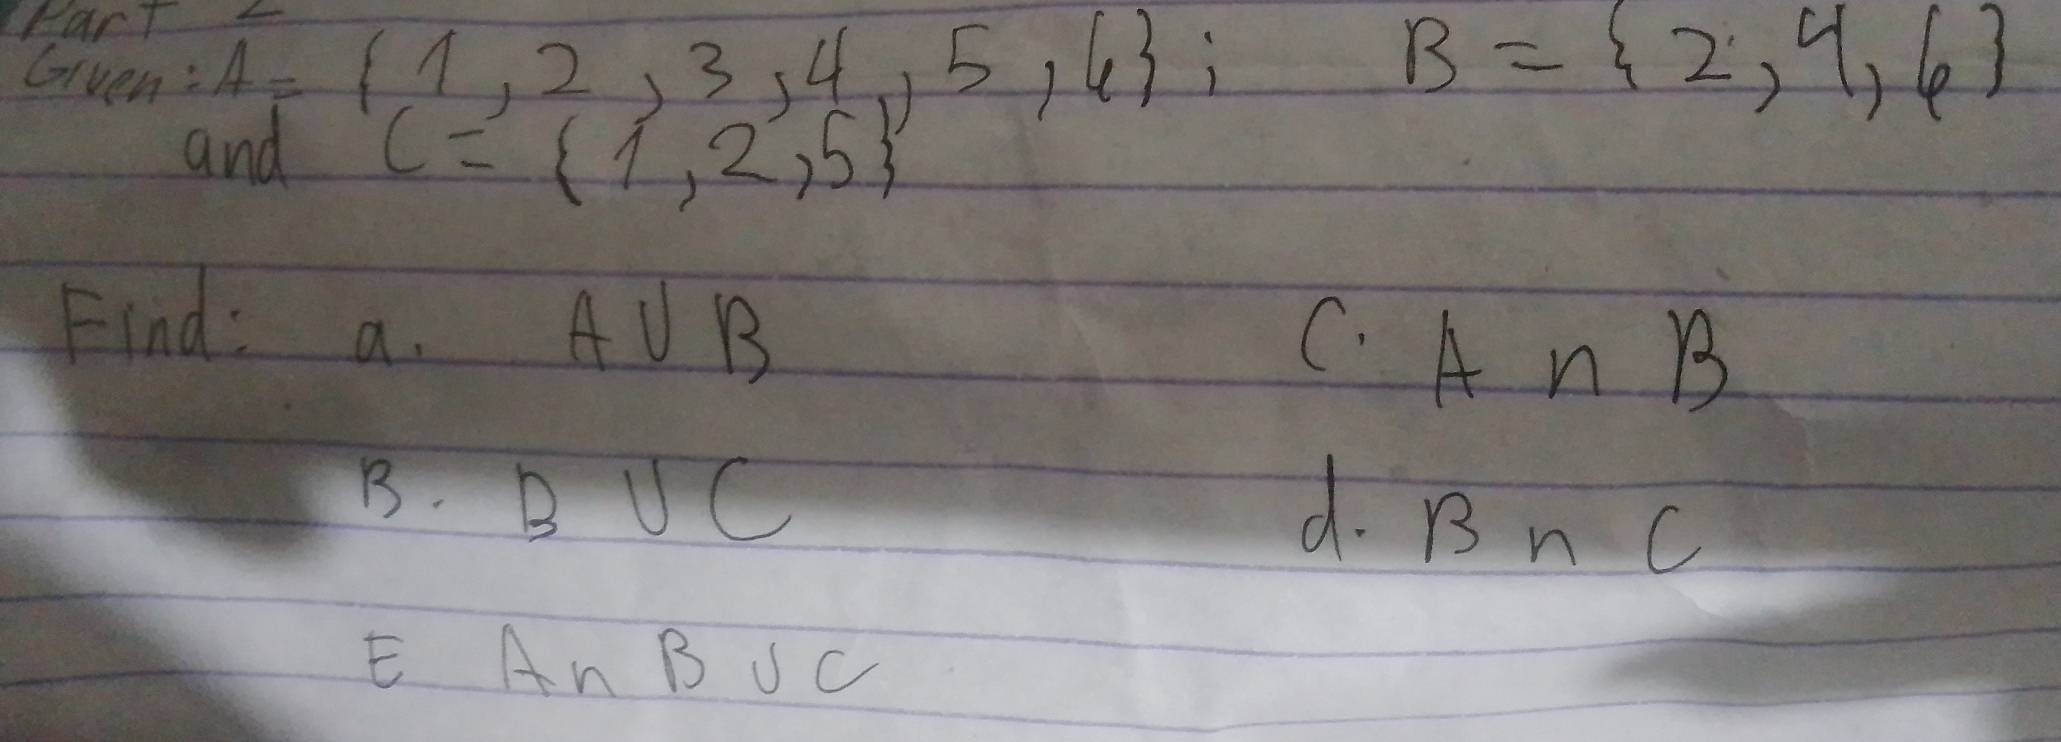 Part 2
Given: A = { 1, 2, 3, 4, 5, 6} ; B = { 2, 4, 6}
and C = { 1, 2, 5}
Find: a. A U B C. A n B
B. B U C d. B n C
E A n B U C